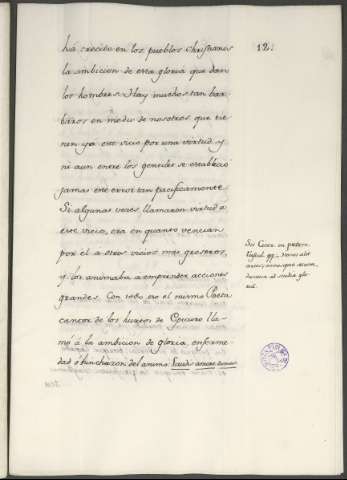 12.
ha crecido en los pueblos christianos
la ambicion de esta gloria que dan
los hombres. Hay muchos tan bar-
baros en medio de nosotros que tie-
nen ya este vicio por una virtud, y
ni aun entre los gentiles se estableció
jamas este error tan pacificamente.
Si algunas veces llamaron virtud a
este vicio, era en quanto vencian
por él a otros vicios más groseros,
y los animaba a emprender acciones
grandes. Con todo eso el mismo Poeta
cantor de los hurtos de Cpicuro lla-
mó á la ambicion de gloria, enferme-
dad ó hinchazon del animo. Laudis amore
Sic Cicer. in
Tuscul. qq. Honos alit
artes, omnesque accen-
duntur ad studia glo-
ria.